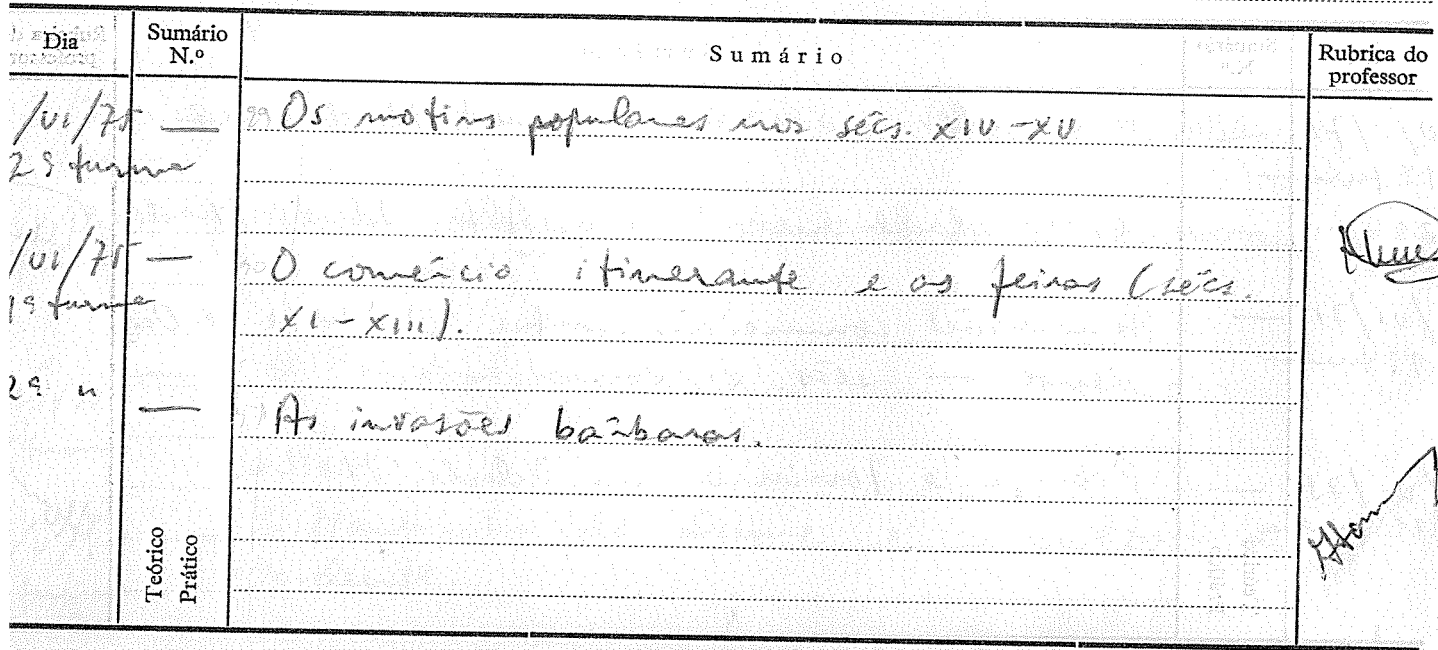 Dia Sumário N.º Sumário Rubrica do professor
/VI/75 — Os motins populares nos sécs. XIV-XV
2ª turma
/VI/75 — O comércio itinerante e as feiras (sécs.
1ª turma XI-XIII).
2ª " — As invasões bárbaras.
Teórico
Prático